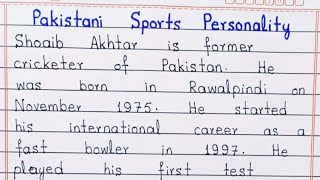 Pakistani Sports Personality
Shoaib Akhtar is former
cricketer of Pakistan. He
was born in Rawalpindi on
November 1975. He started
his international career as a
fast bowler in 1997. He
played his first test